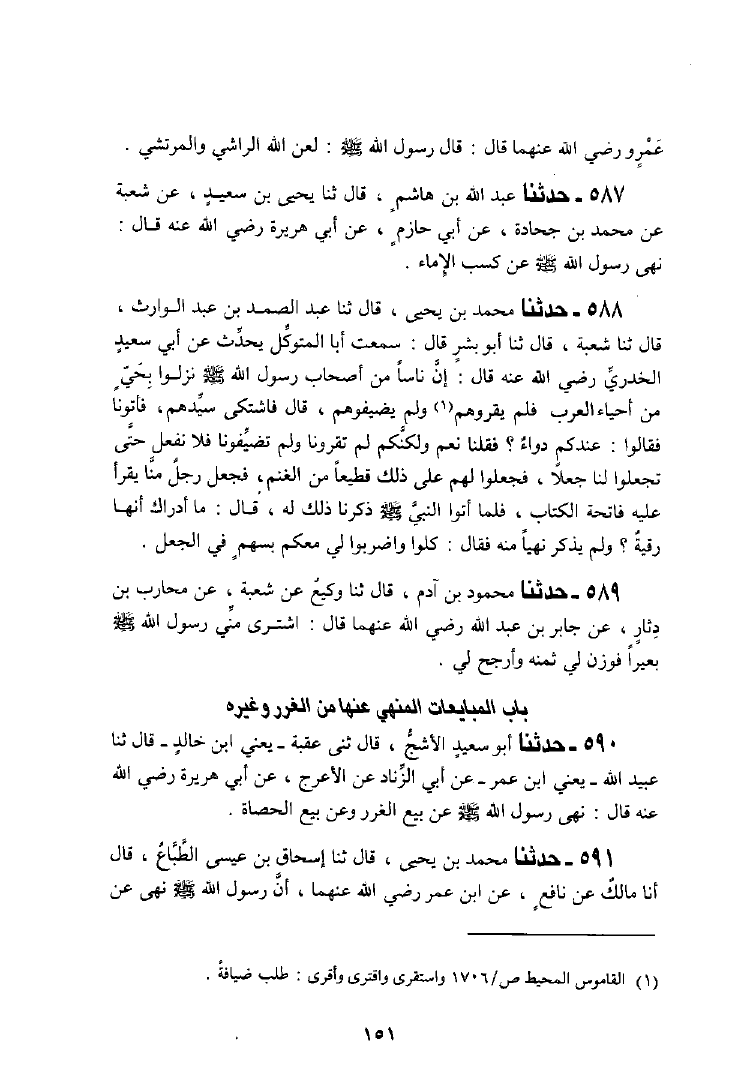 عَمْرٍو رضي الله عنهما قال : قال رسول الله ﷺ : لعن الله الراشي والمرتشي .
٥٨٧ ـ حدثنا عبد الله بن هاشمٍ ، قال ثنا يحيى بن سعيـدٍ ، عن شعبة
عن محمد بن جحادة ، عن أبي حازمٍ ، عن أبي هريرة رضي الله عنه قـال :
نهى رسول الله ﷺ عن كسب الإماء .
٥٨٨ ـ حدثنا محمد بن يحيى ، قال ثنا عبد الصمـد بن عبد الـوارث ،
قال ثنا شعبة ، قال ثنا أبو بشرٍ قال : سمعت أبا المتوكِّل يحدِّث عن أبي سعيدٍ
الخدريِّ رضي الله عنه قال : إنَّ ناساً من أصحاب رسول الله ﷺ نزلـوا بِحَيٍّ
من أحياء العرب فلم يقروهم(١) ولم يضيفوهم ، قال فاشتكى سيِّدهم، فأتونا
فقالوا : عندكم دواءٌ ؟ فقلنا نعم ولكنَّكم لم تقرونا ولم تضيِّفونا فلا نفعل حتَّى
تجعلوا لنا جعلاً ، فجعلوا لهم على ذلك قطيعاً من الغنم، فجعل رجلٌ منَّا يقرأ
عليه فاتحة الكتاب ، فلما أتوا النبيَّ ﷺ ذكرنا ذلك له ، قـال : ما أدراك أنهـا
رقيةٌ ؟ ولم يذكر نهياً منه فقال : كلوا واضربوا لي معكم بسهمٍ في الجعل .
٥٨٩ ـ حدثنا محمود بن آدم ، قال ثنا وكيعٌ عن شعبة ، عن محارب بن
دِثارٍ ، عن جابر بن عبد الله رضي الله عنهما قال : اشتـرى منِّي رسول الله ﷺ
بعيراً فوزن لي ثمنه وأرجح لي .
باب المبايعات المنهي عنها من الغرر وغيره
٥٩٠ ـ حدثنا أبو سعيدٍ الأشجُّ ، قال ثنى عقبة ـ يعني ابن خالدٍ ـ قال ثنا
عبيد الله ـ يعني ابن عمر ـ عن أبي الزِّناد عن الأعرج ، عن أبي هريرة رضي الله
عنه قال : نهى رسول الله ﷺ عن بيع الغرر وعن بيع الحصاة .
٥٩١ ـ حدثنا محمد بن يحيى ، قال ثنا إسحاق بن عيسى الطَّبَّاعُ ، قال
أنا مالكٌ عن نافعٍ ، عن ابن عمر رضي الله عنهما ، أنَّ رسول الله ﷺ نهى عن
(١) القاموس المحيط ص/١٧٠٦ واستقرى واقترى وأقرى : طلب ضيافةً .
١٥١